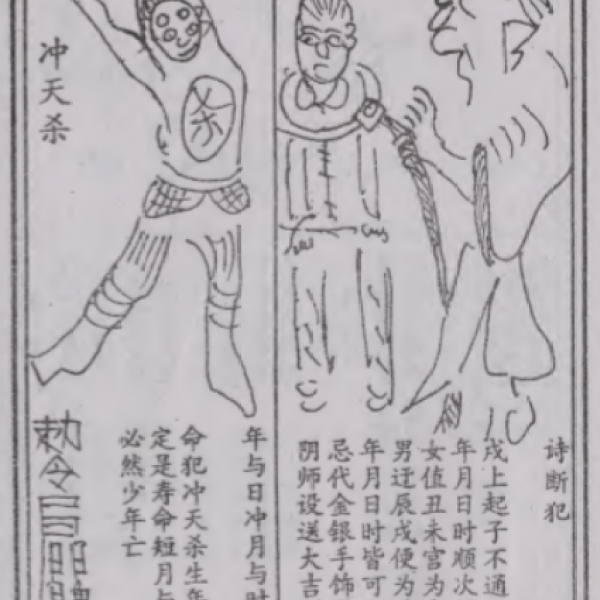 诗断犯
戌上起子不通
年月日时顺次
女值丑未宫为
男迂辰戌便为
年月日时皆可
忌代金银手饰
阴师设送大吉
冲天杀
杀
年与日冲月与时
命犯冲天杀生年
定是寿命短月与
必然少年亡
勅令